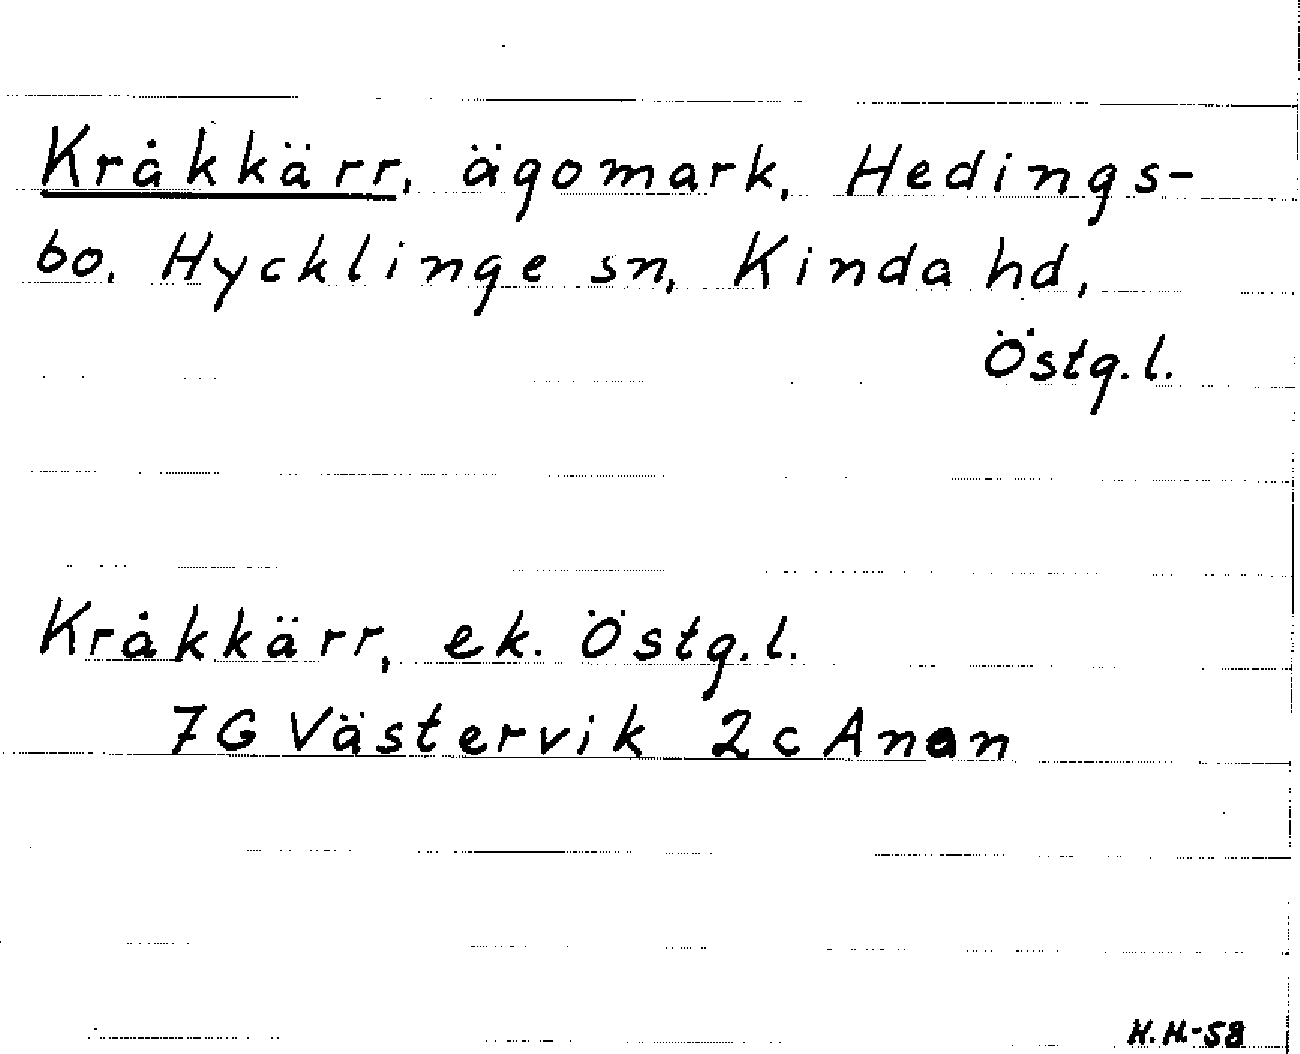 Kråkkärr, ägomark, Hedings-
bo, Hycklinge sn, Kinda hd,
Östg.l.
Kråkkärr, ek. Östg.l.
7G Västervik 2c Anan
H.H.-58